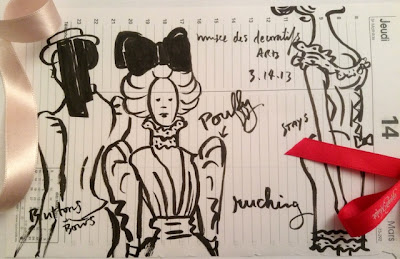 musee des decoratifs
ARTS
3.14.13
Pouffy
STAYS
ruching
Buttons
Bows
Jeudi
14
Mars